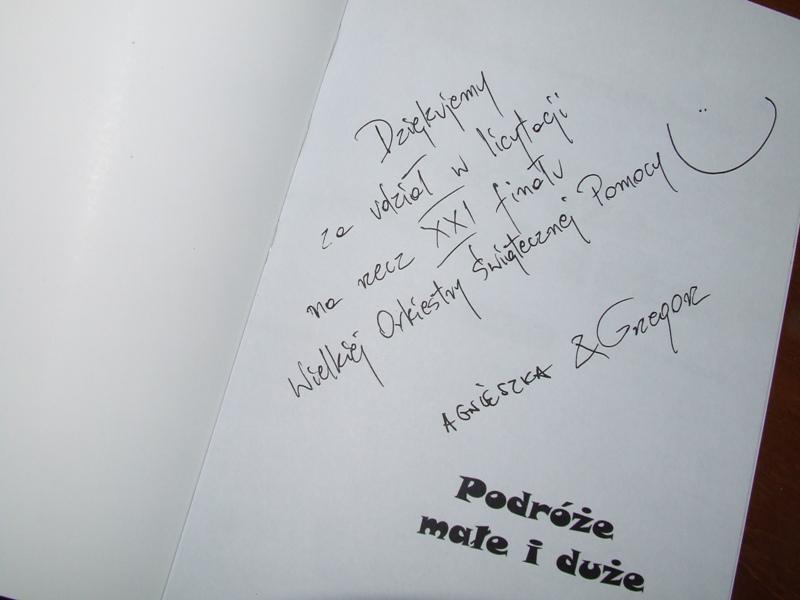 Dziękujemy
za udział w licytacji
na rzecz XXI finału
Wielkiej Orkiestry Świątecznej Pomocy
AGNIESZKA & Grzegorz
Podróże
małe i duże